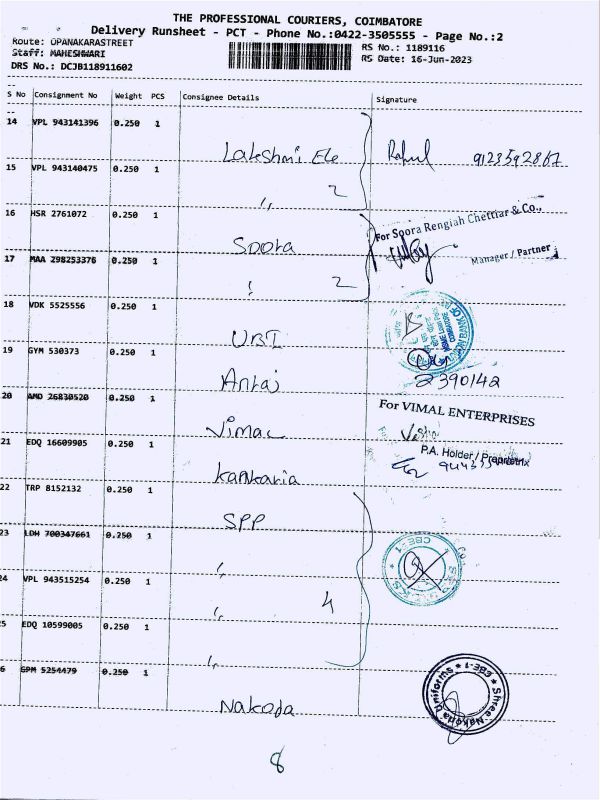 THE PROFESSIONAL COURIERS, COIMBATORE
Delivery Runsheet - PCT - Phone No.:0422-3505555 - Page No.:2
Route: OPANAKARASTREET
RS No.: 1189116
Staff: MAHESHWARI
RS Date: 16-Jun-2023
DRS No.: DCJB118911602
S No Consignment No Weight PCS Consignee Details Signature
14 VPL 943141396 0.250 1
Lakshmi Ele Rahul 9123592867
15 VPL 943140475 0.250 1
" 2
16 HSR 2761072 0.250 1
For Soora Rengiah Chettiar & Co.,
Soora
Manager / Partner
17 MAA 298253376 0.250 1
2
18 VDK 5525556 0.250 1
UBI
19 GYM 530373 0.250 1
Antaj 2390142
20 AMD 26830520 0.250 1
For VIMAL ENTERPRISES
Vimal
21 EDQ 16609905 0.250 1
P.A. Holder / Proprietrix
Kankaria
22 TRP 8152132 0.250 1
SPP
23 LDH 700347661 0.250 1
"
24 VPL 943515254 0.250 1
" 4
5 EDQ 10599005 0.250 1
"
6 SPM 5254479 0.250 1
Nakoda
Shree Nakoda Uniforms ★ CBE-1 ★
8